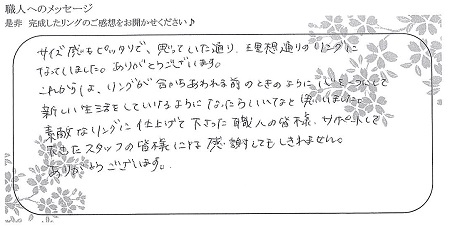 職人へのメッセージ
是非 完成したリングのご感想をお聞かせください♪
サイズ感もピッタリで、思っていた通り、理想通りのリングに
なっていました。ありがとうございます。
これからは、リングが合わさあわれる前のときのように心を一つにして
新しい生活をしていけるようになったらいいなと思いました。
素敵なリングに仕上げて下さった職人の皆様、サポートして
下さったスタッフの皆様には感謝してもしきれません。
ありがとうございます。